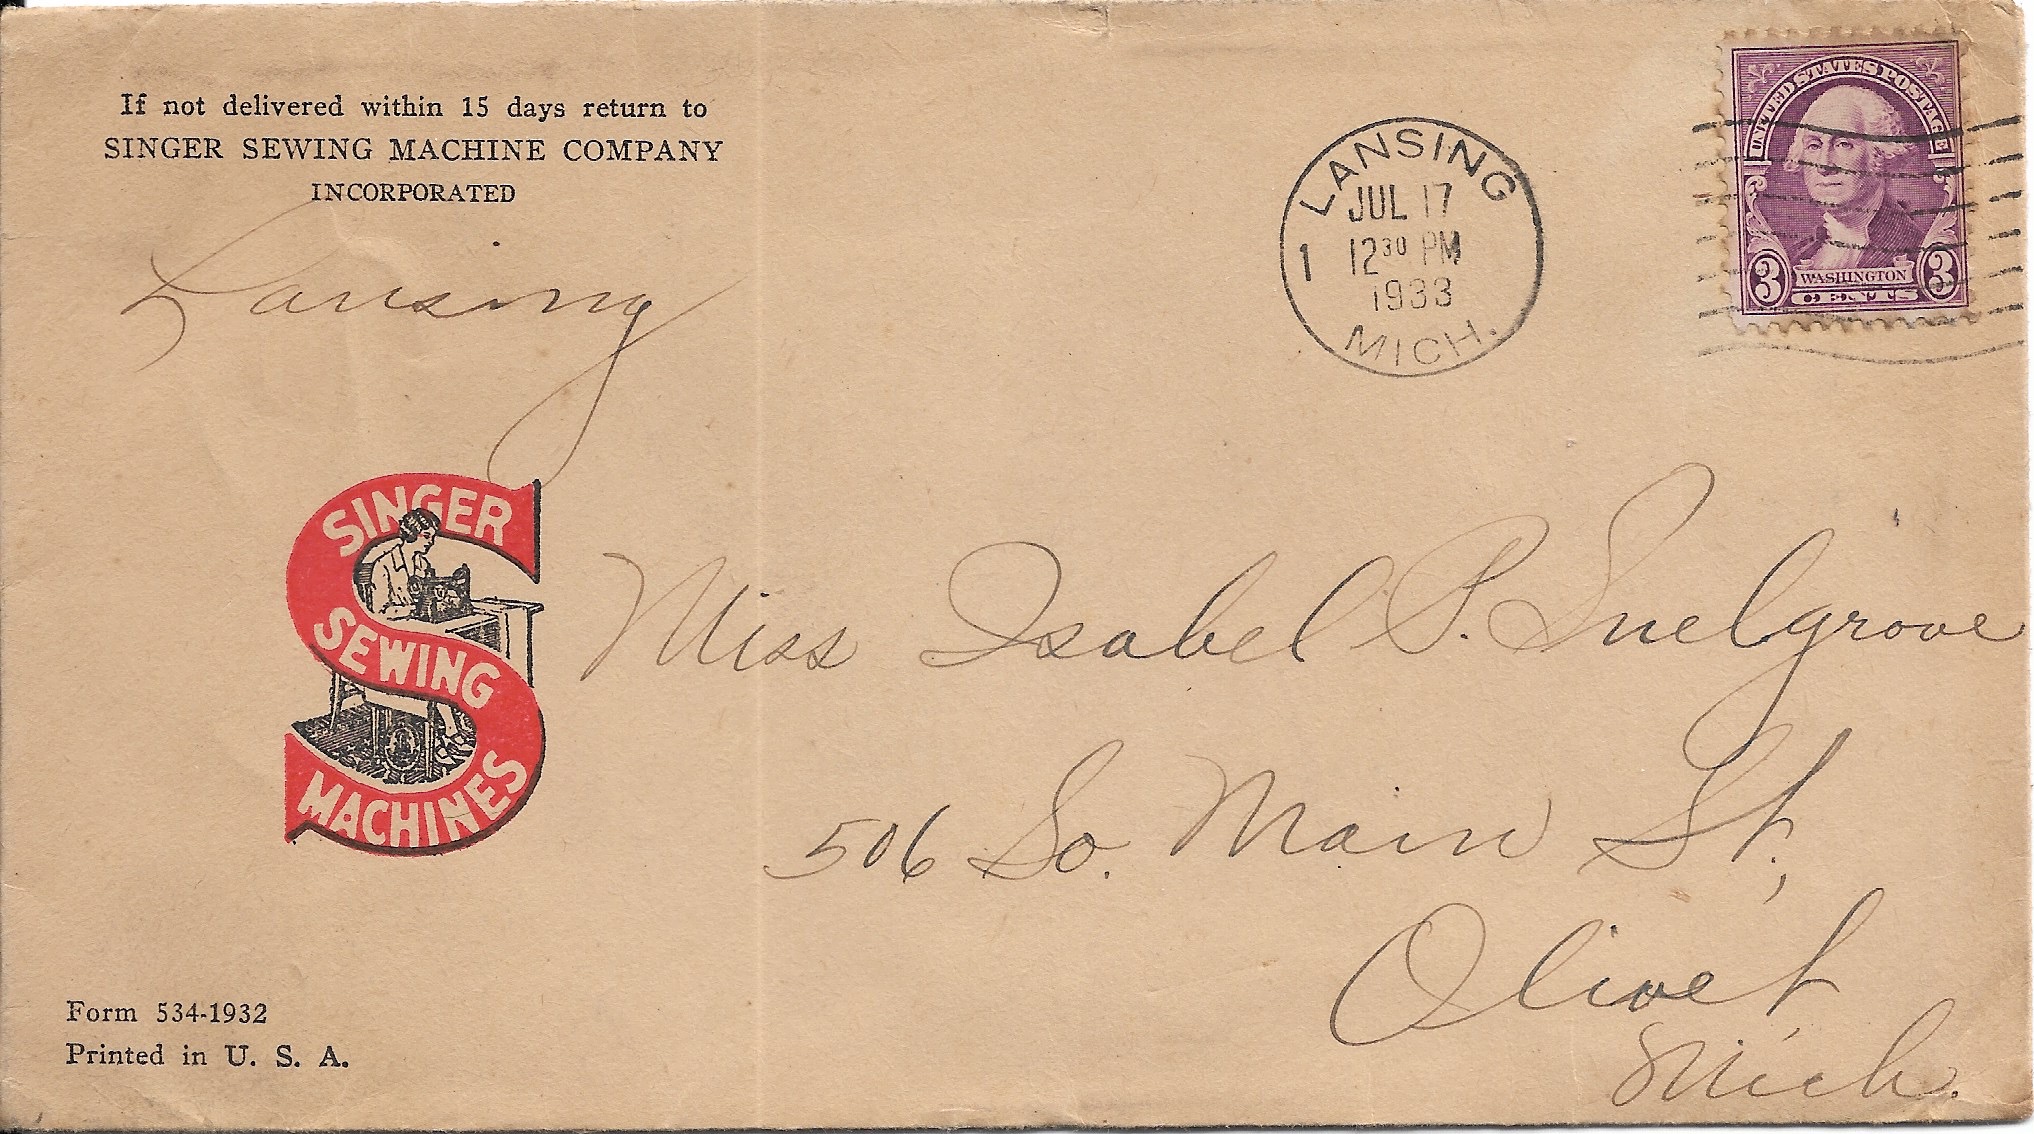 If not delivered within 15 days return to
SINGER SEWING MACHINE COMPANY
INCORPORATED
Lansing
LANSING
JUL 17
1 12 30 PM
1933
MICH.
UNITED STATES POSTAGE
3 WASHINGTON 3
CENTS
SINGER
SEWING
MACHINES
Miss Isabel P. Snelgrove
506 So. Main St,
Olivet
Mich.
Form 534-1932
Printed in U. S. A.